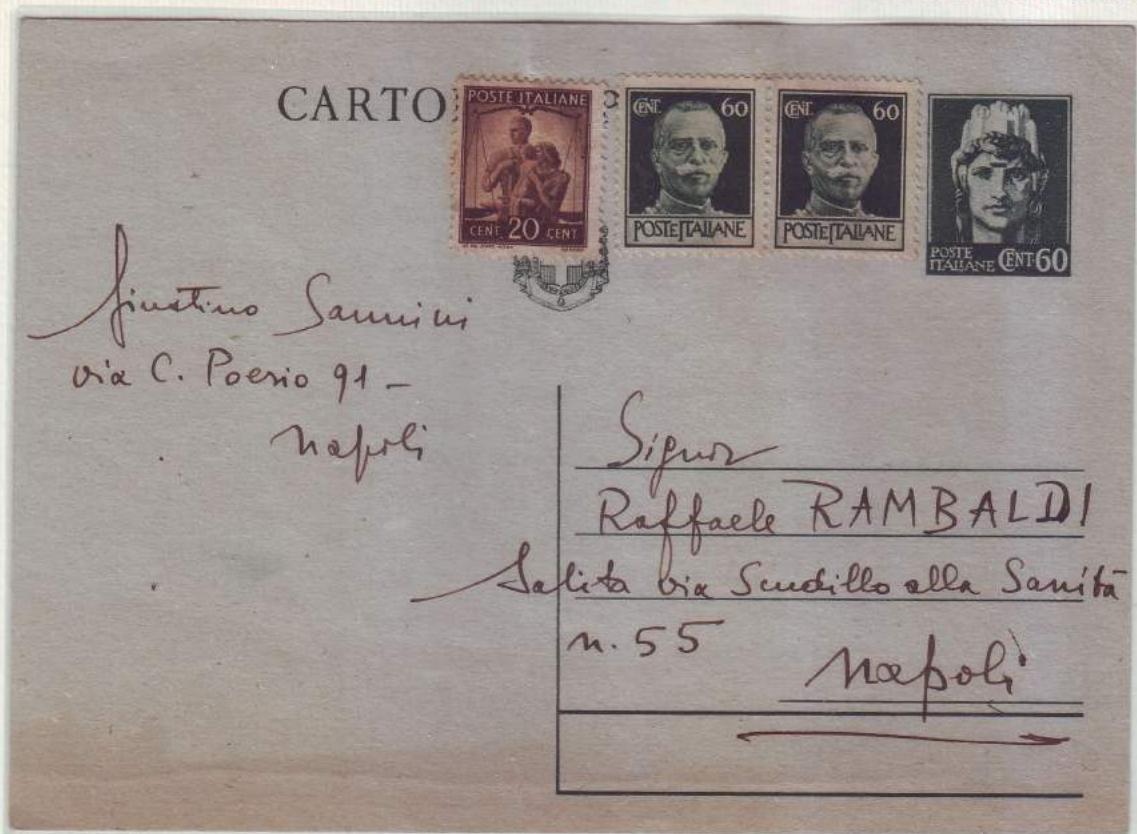 CARTO
POSTE ITALIANE
CENT 20 CENT
CENT. 60
POSTE ITALIANE
CENT. 60
POSTE ITALIANE
POSTE
ITALIANE CENT 60
Giustino Sannini
via C. Poerio 91 -
Napoli
Signor
Raffaele RAMBALDI
Salita via Scudillo alla Sanità
n. 55
Napoli